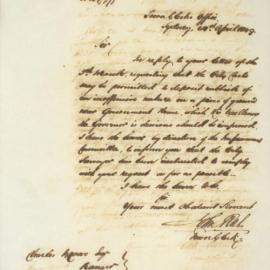 Town Clerks Office,
Sydney, April 184
Sir
In reply to your letter of the
requesting that the City Carts
may be permitted to deposit rubbish of
an inoffensive nature on a piece of ground
near Government House, which His Excellency
the Governor is desirous should be improved,
I have the honor by direction of the Improvement
Committee, to inform you that the City
Surveyor has been instructed to comply
with your request as far as possible.
I have the honor to be
Sir
Your most obedient Servant
Town Clerk
Charles Moore Esqr